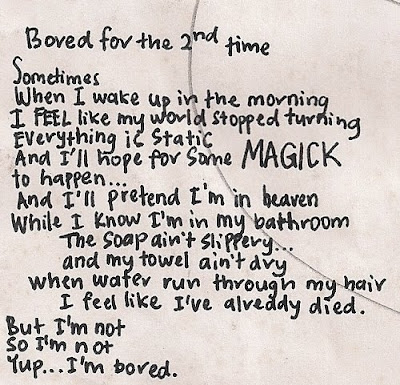 Bored for the 2nd time
Sometimes
When I wake up in the morning
I FEEL like my world stopped turning
Everything is static
And I'll hope for some MAGICK
to happen...
And I'll pretend I'm in heaven
While I know I'm in my bathroom
The soap ain't slippery...
and my towel ain't dry
when water run through my hair
I feel like I've already died.
But I'm not
So I'm not
Yup...I'm bored.